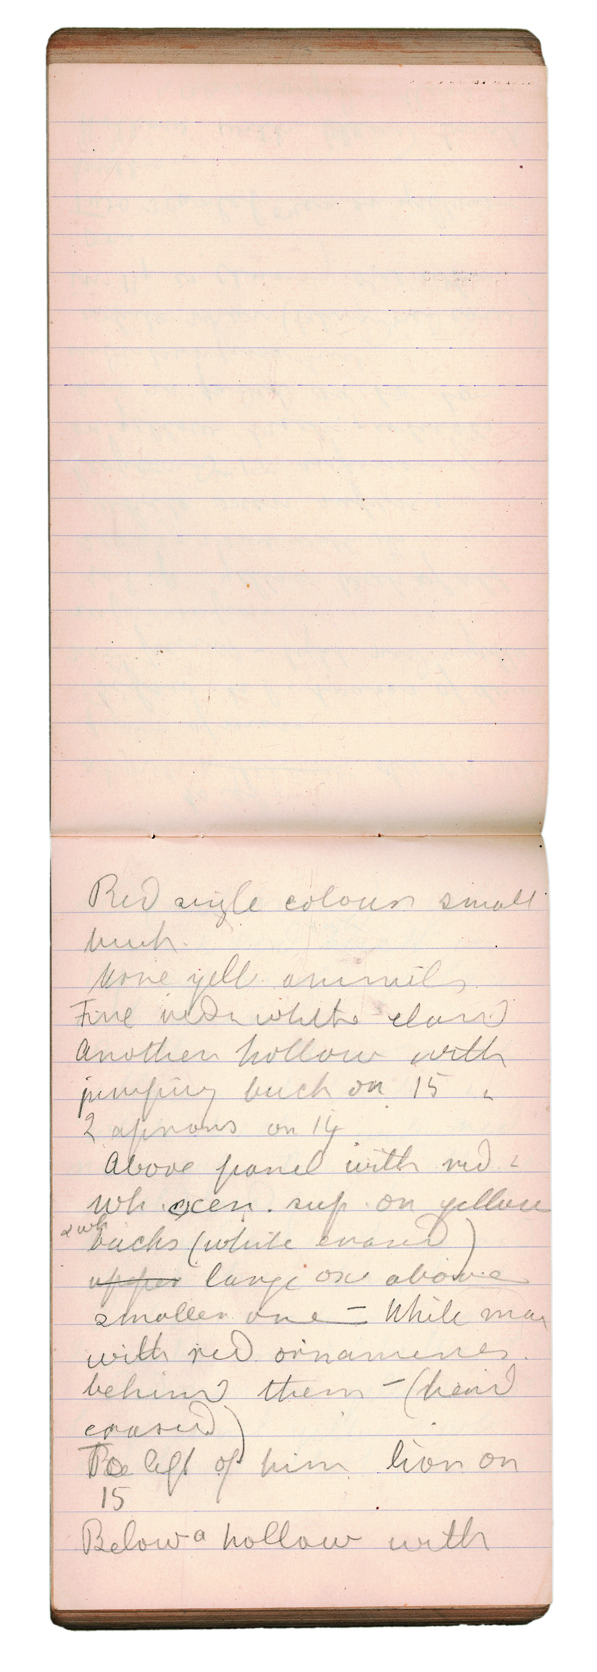 Red single colour small
buck.
None yell. animals.
Fine red & white eland
Another hollow with
jumping buck on 15
2 aprons on 14
Above panel with red &
wh. oxen. sup. on yellow
& wh
bucks (white erased)
upper large ox above
smaller one – White man
with red ornaments
behind them – (head
erased)
To left of him lion on
15
Below a hollow with